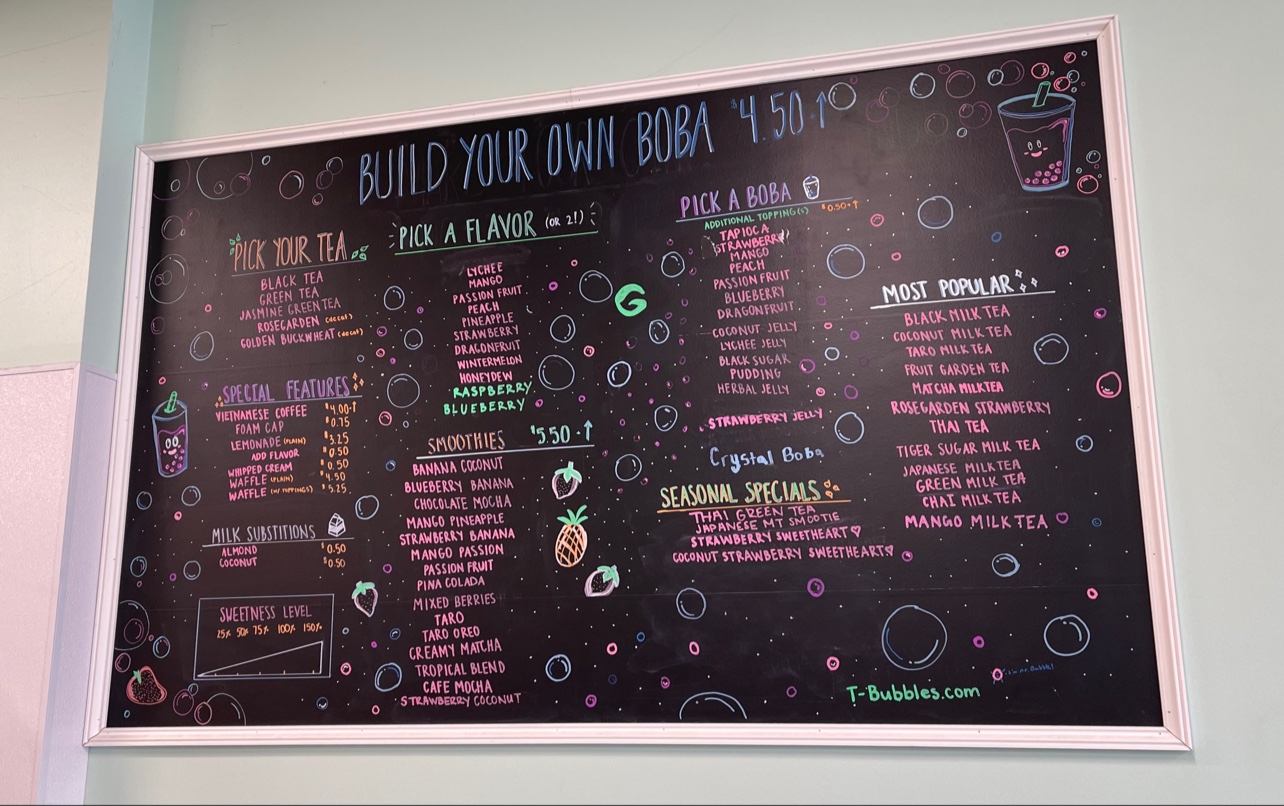 BUILD YOUR OWN BOBA $4.50↑
PICK YOUR TEA
BLACK TEA
GREEN TEA
JASMINE GREEN TEA
ROSEGARDEN (decaf)
GOLDEN BUCKWHEAT (decaf)
SPECIAL FEATURES
VIETNAMESE COFFEE $4.00↑
FOAM CAP $0.75
LEMONADE (PLAIN) $3.25
ADD FLAVOR $0.50
WHIPPED CREAM $0.50
WAFFLE (PLAIN) $4.50
WAFFLE (W/ TOPPINGS) $5.25
MILK SUBSTITIONS
ALMOND $0.50
COCONUT $0.50
SWEETNESS LEVEL
25% 50% 75% 100% 150%
PICK A FLAVOR (OR 2!)
LYCHEE
MANGO
PASSION FRUIT
PEACH
PINEAPPLE
STRAWBERRY
DRAGONFRUIT
WINTERMELON
HONEYDEW
RASPBERRY
BLUEBERRY
SMOOTHIES $5.50↑
BANANA COCONUT
BLUEBERRY BANANA
CHOCOLATE MOCHA
MANGO PINEAPPLE
STRAWBERRY BANANA
MANGO PASSION
PASSION FRUIT
PINA COLADA
MIXED BERRIES
TARO
TARO OREO
CREAMY MATCHA
TROPICAL BLEND
CAFE MOCHA
STRAWBERRY COCONUT
G
PICK A BOBA
ADDITIONAL TOPPING(S) $0.50↑
TAPIOCA
STRAWBERRY
MANGO
PEACH
PASSION FRUIT
BLUEBERRY
DRAGONFRUIT
COCONUT JELLY
LYCHEE JELLY
BLACK SUGAR
PUDDING
HERBAL JELLY
STRAWBERRY JELLY
Crystal Boba
SEASONAL SPECIALS
THAI GREEN TEA
JAPANESE MT SMOOTIE
STRAWBERRY SWEETHEART♡
COCONUT STRAWBERRY SWEETHEART♡
MOST POPULAR
BLACK MILK TEA
COCONUT MILK TEA
TARO MILK TEA
FRUIT GARDEN TEA
MATCHA MILKTEA
ROSEGARDEN STRAWBERRY
THAI TEA
TIGER SUGAR MILK TEA
JAPANESE MILKTEA
GREEN MILK TEA
CHAI MILK TEA
MANGO MILK TEA ♡
T-Bubbles.com